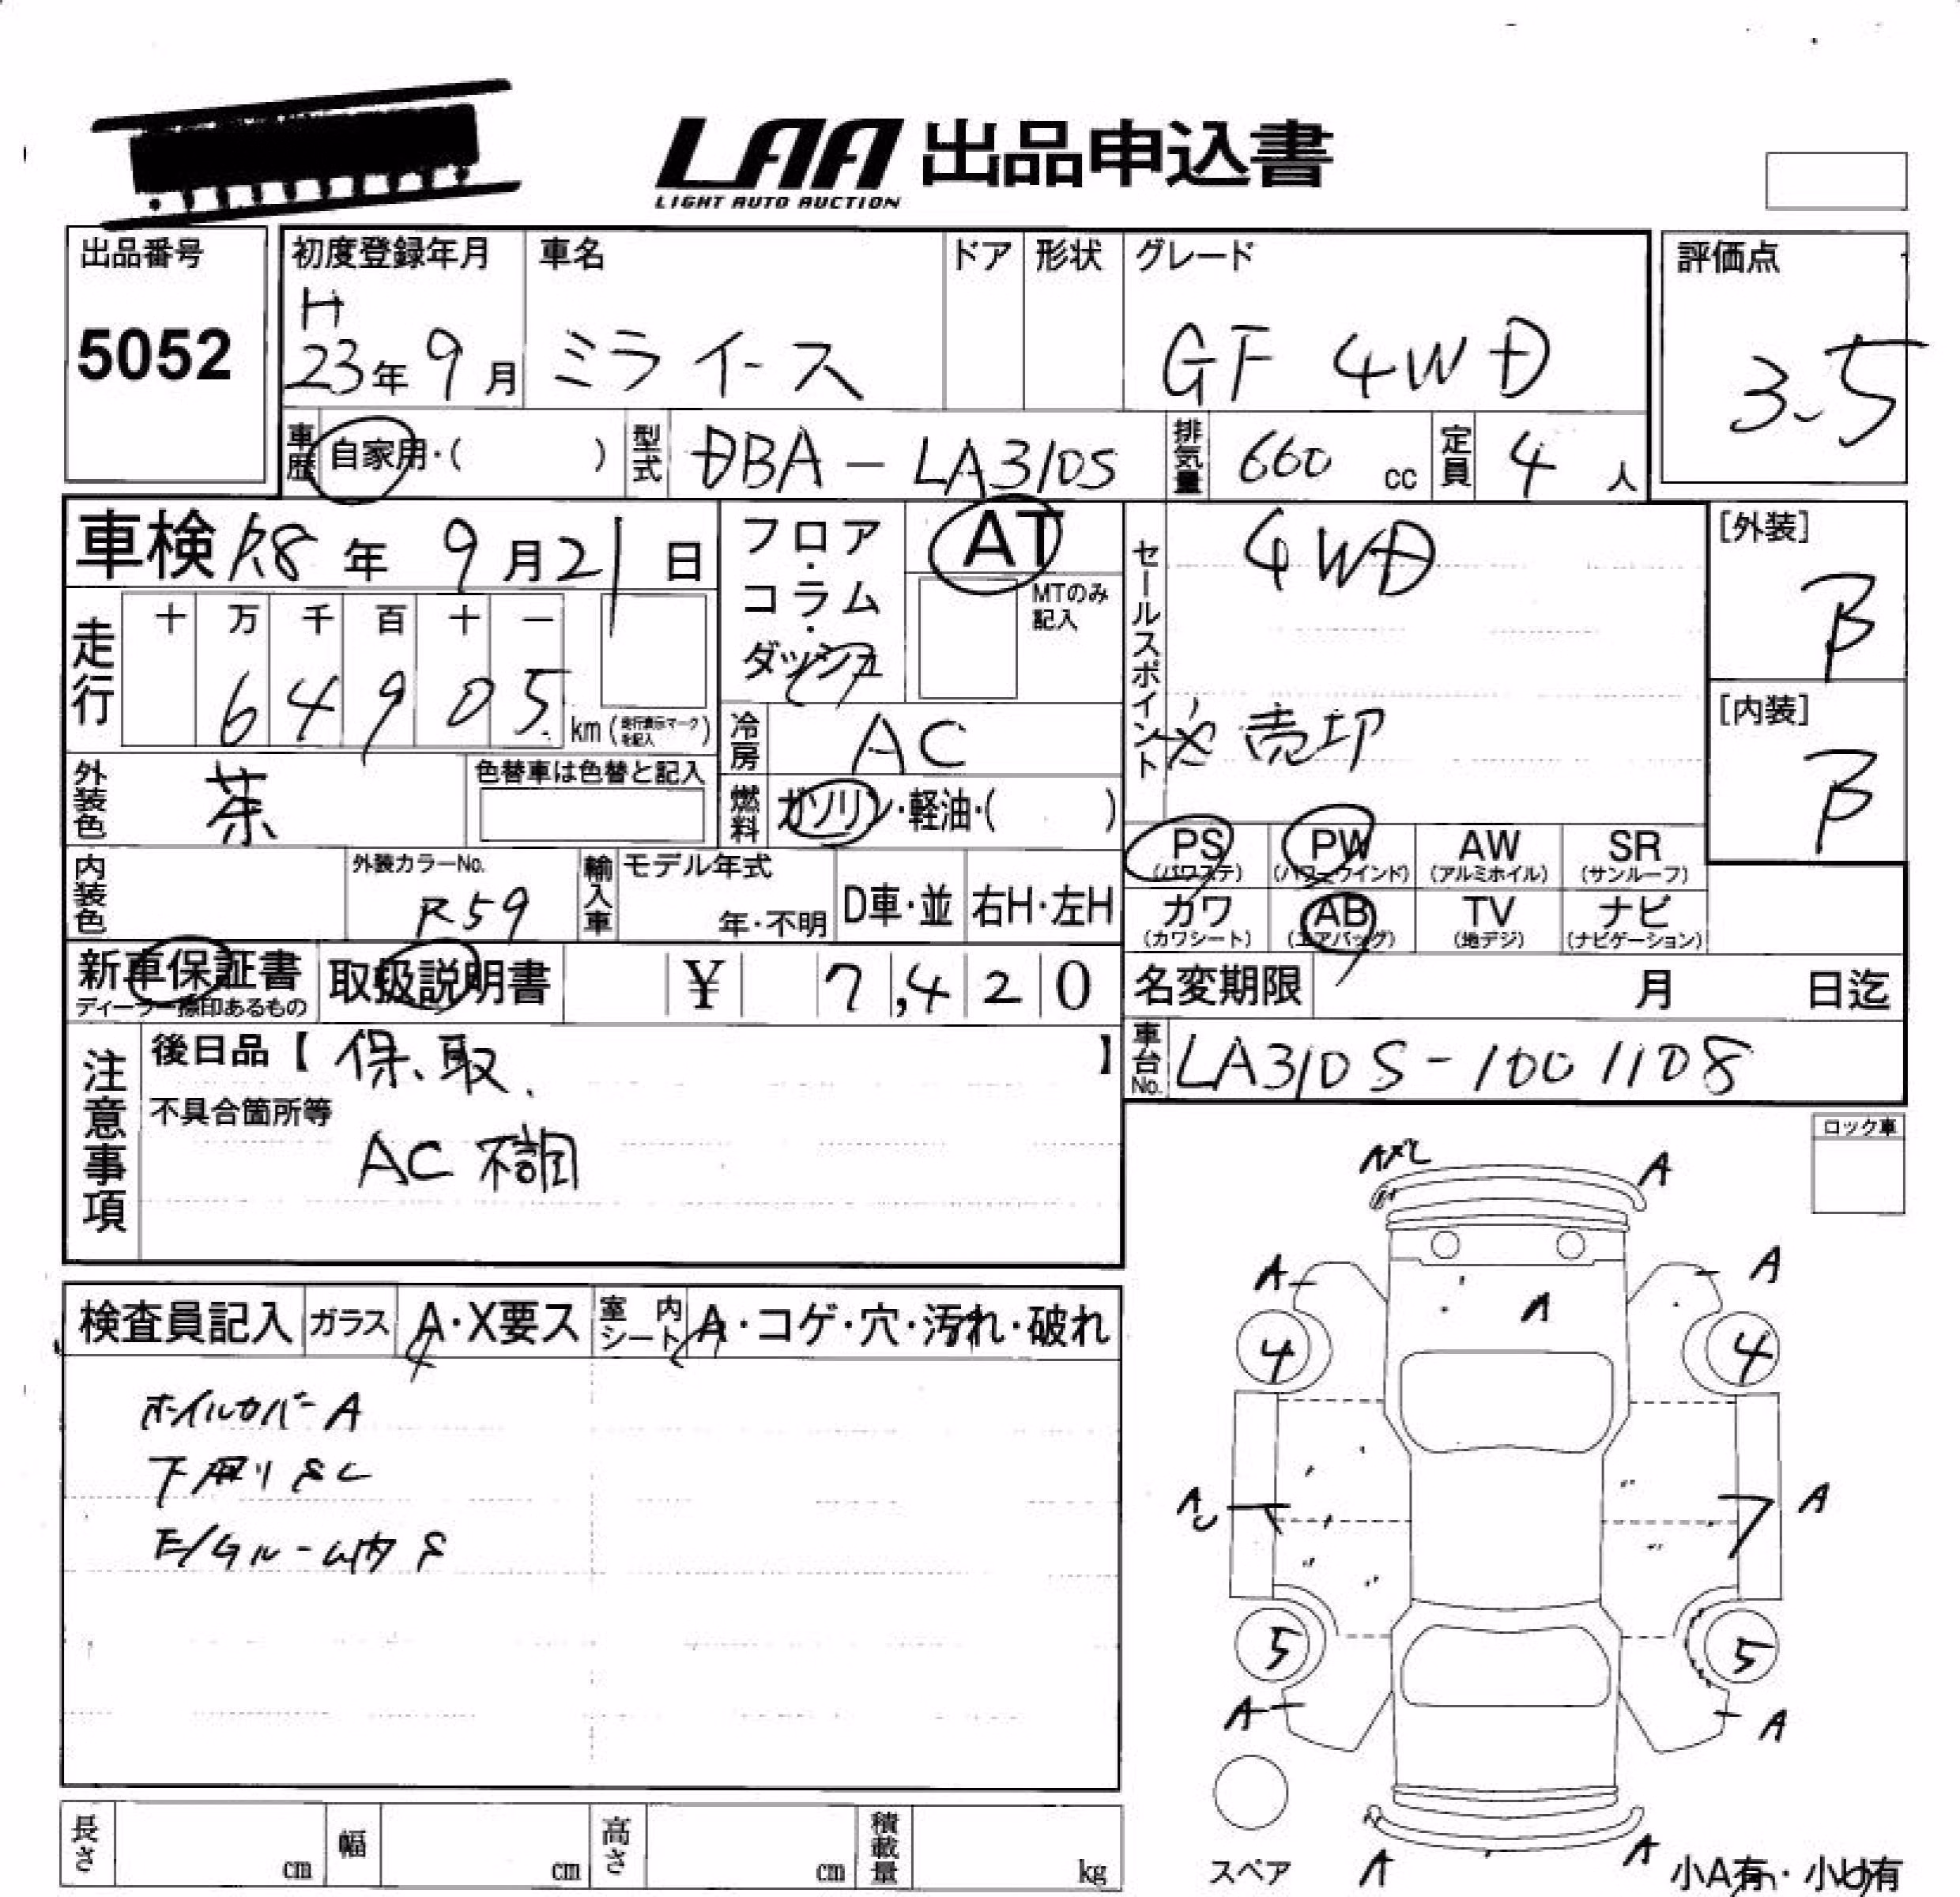 LAA 出品申込書
LIGHT AUTO AUCTION
出品番号
5052
初度登録年月
H
23年 9月
車名
ミライース
ドア
形状
グレード
GF 4WD
評価点
3.5
車歴 自家用・( )
型式 DBA-LA310S
排気量 660 cc
定員 4 人
車検 R8年 9月21日
フロア・コラム・ダッシュ
AT
MTのみ記入
セールスポイント
4WD
売切
[外装]
B
[内装]
B
走行
十 万 千 百 十 一
6 4 9 0 5 km (走行表示マークを記入)
冷房 AC
外装色 茶
色替車は色替と記入
燃料 ガソリン・軽油・( )
PS (パワステ)
PW (パワーウインド)
AW (アルミホイル)
SR (サンルーフ)
内装色
外装カラーNo.
R59
輸入車
モデル年式
年・不明
D車・並
右H・左H
カワ (カワシート)
AB (エアバッグ)
TV (地デジ)
ナビ (ナビゲーション)
新車保証書
ディーラー捺印あるもの
取扱説明書
¥ 7,420
名変期限 月 日迄
車台No. LA310S-1001108
注意事項
後日品【 保、取. 】
不具合箇所等
AC不調
ロック車
検査員記入
ガラス A・X要ス
室内シート A・コゲ・穴・汚れ・破れ
ホイルカバーA
下廻りSC
E/Gルーム内S
A
A
A
A
4
4
A
5
5
A
A
A
A
スペア
小A有・小U有
長さ cm
幅 cm
高さ cm
積載量 kg